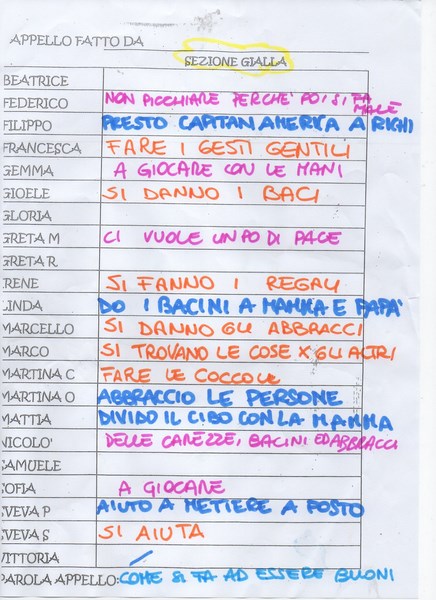 APPELLO FATTO DA
SEZIONE GIALLA
BEATRICE
FEDERICO NON PICCHIARE PERCHE' POI SI FA MALE
FILIPPO PRESTO CAPITAN AMERICA A RICHI
FRANCESCA FARE I GESTI GENTILI
GEMMA A GIOCARE CON LE MANI
GIOELE SI DANNO I BACI
GLORIA
GRETA M CI VUOLE UN PO DI PACE
GRETA R
IRENE SI FANNO I REGALI
LINDA DO I BACINI A MAMMA E PAPA'
MARCELLO SI DANNO GLI ABBRACCI
MARCO SI TROVANO LE COSE X GLI ALTRI
MARTINA C FARE LE COCCOLE
MARTINA O ABBRACCIO LE PERSONE
MATTIA DIVIDO IL CIBO CON LA MAMMA
NICOLO' DELLE CAREZZE, BACINI ED ABBRACCI
SAMUELE
SOFIA A GIOCARE
SVEVA P AIUTO A METTERE A POSTO
SVEVA S SI AIUTA
VITTORIA
PAROLA APPELLO: COME SI FA AD ESSERE BUONI